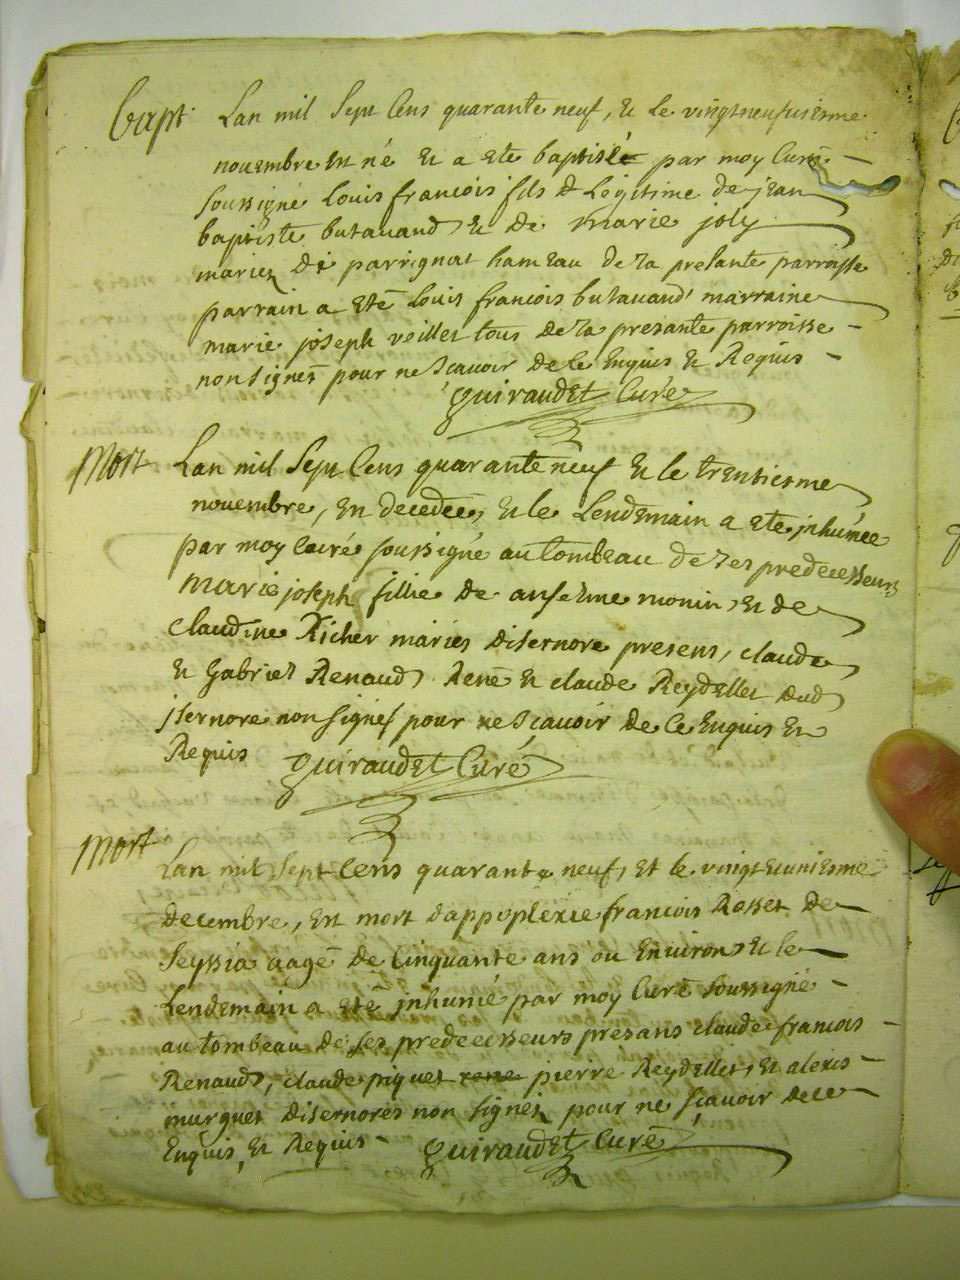 Bapt Lan mil sept Cens quarante neuf, et le vingtneufviesme
novembre est né et a ete baptisé par moy Curé
soussigné Louis francois fils Legitime de jean
baptiste butavand et de marie joly
mariez de parrignat hameau de la presante parroisse
parrain a eté Louis francois butavand marraine
marie joseph veillet tous de la presante parroisse
non signés pour ne scavoir de Ce Enquis et Requis
Guiraudet Curé
Mort Lan mil Sept Cens quarante neuf et le trentiesme
novembre, est decedée, et le Lendemain a ete jnhumée
par moy Curé soussigné au tombeau de ses predecesseurs
marie joseph fillie de anselme monin et de
claudine Richer mariés disernore presens, claude
et Gabriel Renaud, René et claude Reydellet dud
jsernore non signés pour ne scavoir de Ce Enquis et
Requis Guiraudet Curé
Mort Lan mil Sept Cens quarante neuf, et le vingteuniesme
decembre, est mort dappoplexie francois Rosset de
Seyssia aagé de Cinquante ans ou Environ et le
Lendemain a eté jnhumé par moy Curé soussigné
au tombeau de ses predecesseurs presans claude francois
Renaud, claude piquet rene pierre Reydellet, et alexis
murguet disernores non signez pour ne scavoir de Ce
Enquis, et Requis Guiraudet Curé